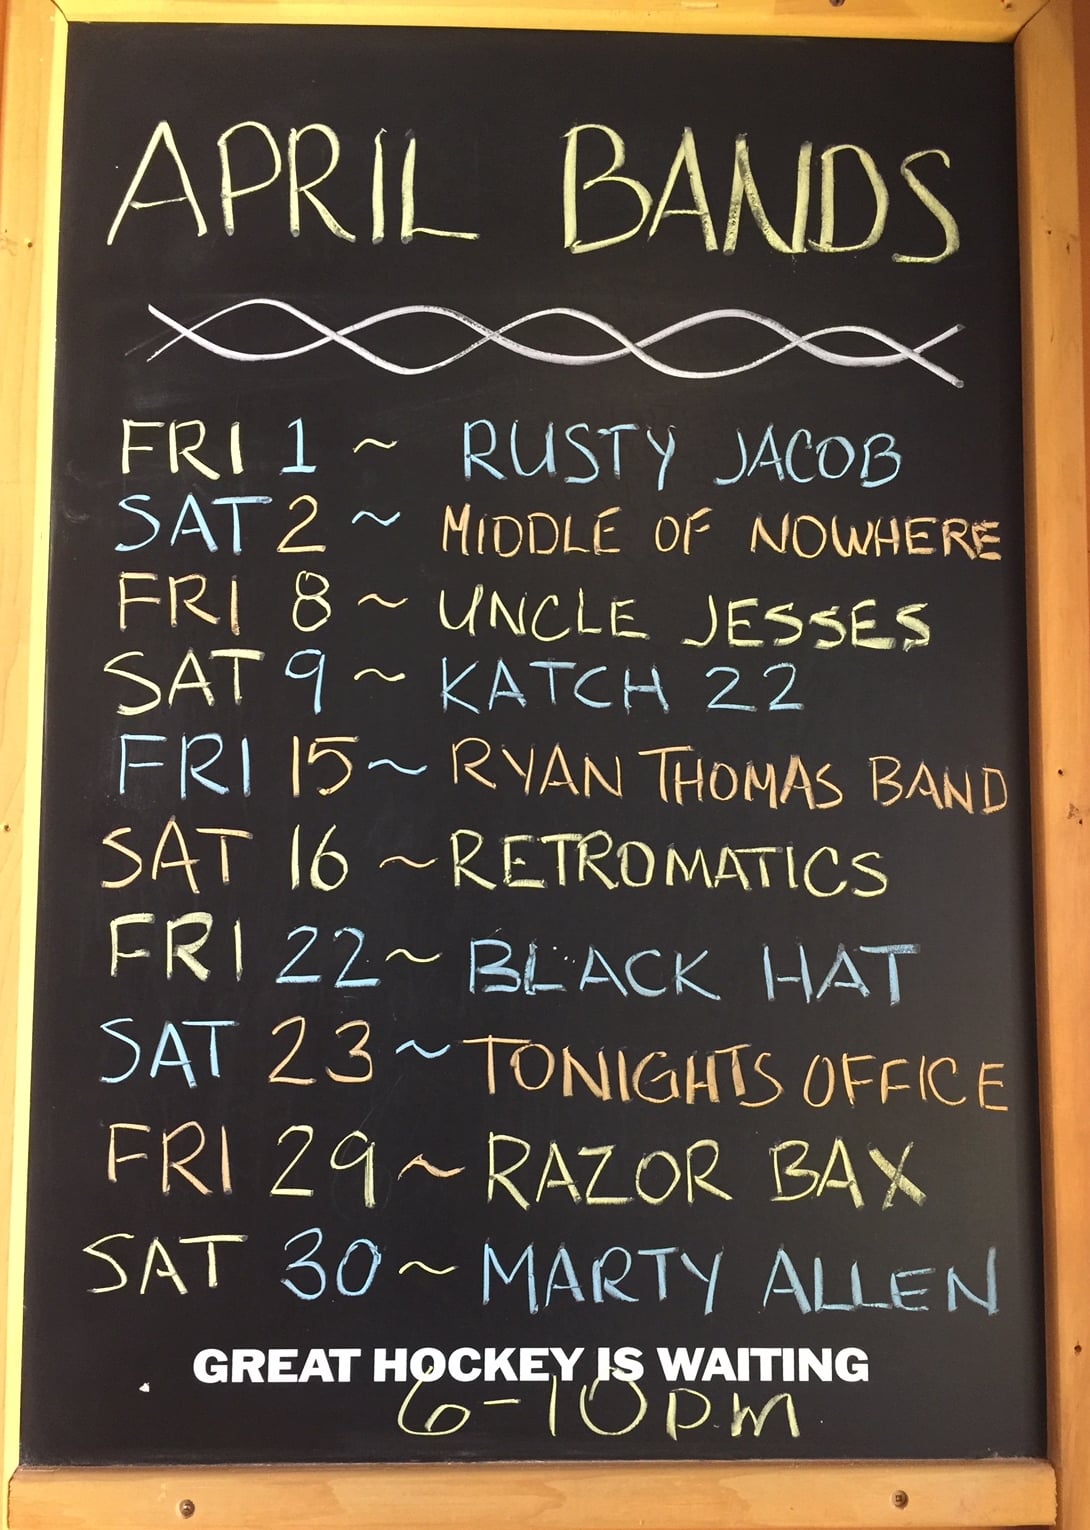 APRIL BANDS
FRI 1 ~ RUSTY JACOB
SAT 2 ~ MIDDLE OF NOWHERE
FRI 8 ~ UNCLE JESSES
SAT 9 ~ KATCH 22
FRI 15 ~ RYAN THOMAS BAND
SAT 16 ~ RETROMATICS
FRI 22 ~ BLACK HAT
SAT 23 ~ TONIGHTS OFFICE
FRI 29 ~ RAZOR BAX
SAT 30 ~ MARTY ALLEN
GREAT HOCKEY IS WAITING
6-10 pm